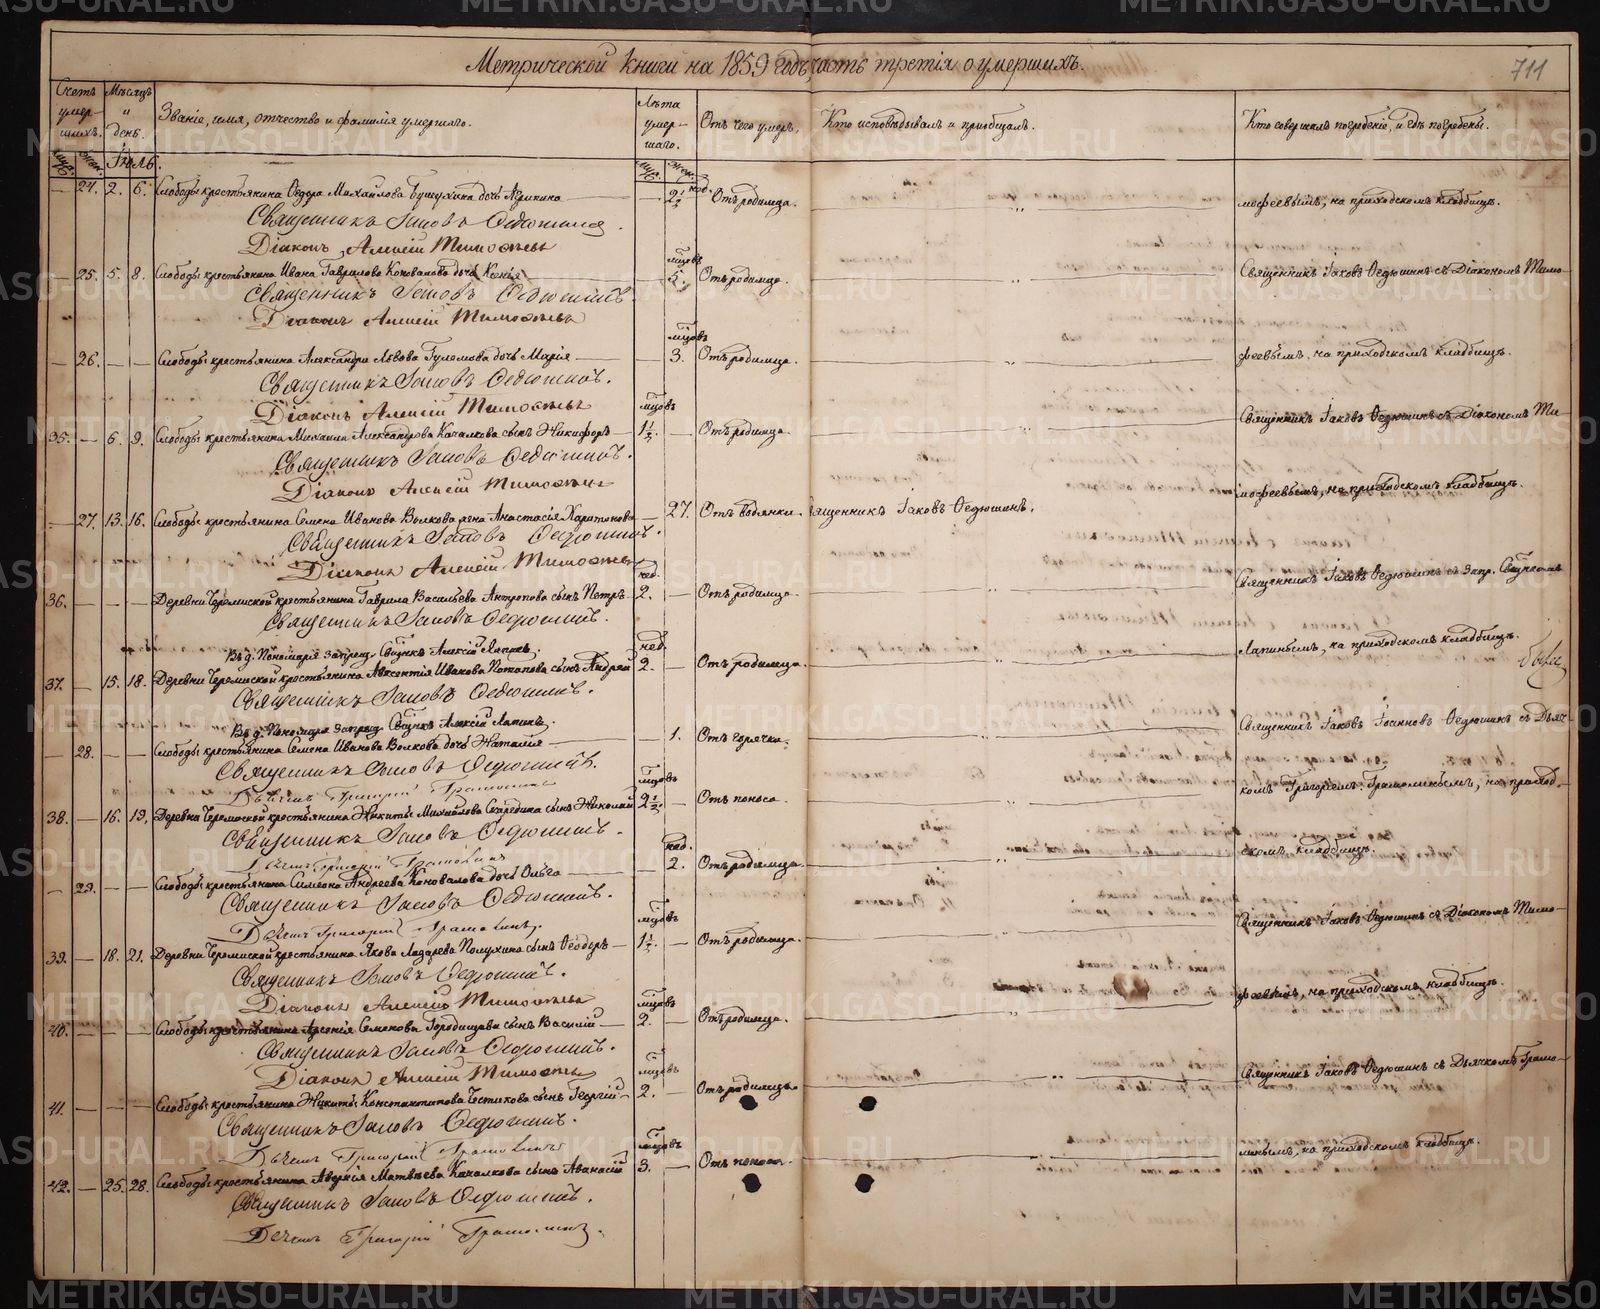 Метрической книги на 1859 годъ, часть третія о умершихъ.
711
Счетъ умершихъ.
Мѣсяцъ и день.
Званіе, имя, отчество и фамилія умершаго.
Лѣта умершаго.
Отъ чего умеръ.
Кто исповѣдывалъ и пріобщалъ.
Кто совершалъ погребеніе, и гдѣ погребены.
муж. жен. Іюль. муж. жен.
— 24. 2. 6. Слободы крестьянина Ѳедора Михайлова дочь — 2½ нед. Отъ родимца. мофеевымъ, на приходскомъ кладбищѣ.
Священникъ Іаковъ Ѳедюшинъ.
Діаконъ Алексій Тимофѣевъ
— 25. 5. 8. Слободы крестьянина Ивана Гаврилова Коновалова дочь Ксенія — мѣсцовъ 5. Отъ родимца. Священникъ Іаковъ Ѳедюшинъ съ Діакономъ Тимо-
Священникъ Іаковъ Ѳедюшинъ.
Діаконъ Алексій Тимофѣевъ
— 26. — — Слободы крестьянина Александра Львова дочь Марія — мѣсцовъ 3. Отъ родимца. феевымъ, на приходскомъ кладбищѣ.
Священникъ Іаковъ Ѳедюшинъ.
Діаконъ Алексій Тимофѣевъ
35. — 6. 9. Слободы крестьянина Михаила Александрова Качалкова сынъ Никифоръ — мѣсцовъ 1½. — Отъ родимца. Священникъ Іаковъ Ѳедюшинъ съ Діакономъ Ти-
Священникъ Іаковъ Ѳедюшинъ.
Діаконъ Алексій Тимофѣевъ
мофеевымъ, на приходскомъ кладбищѣ.
— 27. 13. 16. Слободы крестьянина Семена Иванова Волкова жена Анастасія Харитонова — 27. Отъ водянки. Священникъ Іаковъ Ѳедюшинъ.
Священникъ Іаковъ Ѳедюшинъ.
Діаконъ Алексій Тимофѣевъ
Священникъ Іаковъ Ѳедюшинъ съ запр. Священникомъ
36. — — — Деревни Черемиской крестьянина Гаврила Васильева Антропова сынъ Петръ нед. 2. — Отъ родимца.
Священникъ Іаковъ Ѳедюшинъ.
Въ д. Пономаря запрещ. Свщнкъ Алексій Лапинъ.
Лапинымъ, на приходскомъ кладбищѣ.
37. — 15. 18. Деревни Черемиской крестьянина Авксентія Иванова Потапова сынъ Андрей нед. 2. — Отъ родимца.
Священникъ Іаковъ Ѳедюшинъ.
Въ д. Пономаря запрещ. Свщнкъ Алексій Лапинъ.
Священникъ Іаковъ Іоанновъ Ѳедюшинъ съ Дьяч-
— 28. — — Слободы крестьянина Семена Иванова Волкова дочь Наталія — 1. Отъ горячки.
Священникъ Іаковъ Ѳедюшинъ.
Дьячекъ Григорій Грамолинъ
комъ Григоріемъ Грамолинымъ, на приход-
38. — 16. 19. Деревни Черемиской крестьянина Никиты Михайлова Скаредина сынъ Николай мѣсцовъ 2½. — Отъ поноса.
Священникъ Іаковъ Ѳедюшинъ.
Дьячекъ Григорій Грамолинъ
скомъ кладбищѣ.
— 29. — — Слободы крестьянина Симеона Андреева Коновалова дочь Ольга — нед. 2. Отъ родимца.
Священникъ Іаковъ Ѳедюшинъ.
Дьячекъ Григорій Грамолинъ.
Священникъ Іаковъ Ѳедюшинъ съ Діакономъ Тимо-
39. — 18. 21. Деревни Черемиской крестьянина Якова Лазарева Полухина сынъ Ѳеодоръ — мѣсцовъ 1½. — Отъ родимца.
Священникъ Іаковъ Ѳедюшинъ.
Діаконъ Алексій Тимофѣевъ
феевымъ, на приходскомъ кладбищѣ.
40. — — — Слободы крестьянина Арсенія Семенова Городищева сынъ Василій — мѣсцовъ 2. — Отъ родимца.
Священникъ Іаковъ Ѳедюшинъ.
Діаконъ Алексій Тимофѣевъ
Священникъ Іаковъ Ѳедюшинъ съ Дьячкомъ Грамо-
41. — — — Слободы крестьянина Никиты Константинова сынъ Георгій — мѣсцовъ 2. — Отъ родимца.
Священникъ Іаковъ Ѳедюшинъ.
Дьячекъ Григорій Грамолинъ
линымъ, на приходскомъ кладбищѣ.
42. — 25. 28. Слободы крестьянина Аверкія Матвѣева Качалкова сынъ Аѳанасій мѣсцовъ 3. — Отъ поноса.
Священникъ Іаковъ Ѳедюшинъ.
Дьячекъ Григорій Грамолинъ.
METRIKI.GASO-URAL.RU